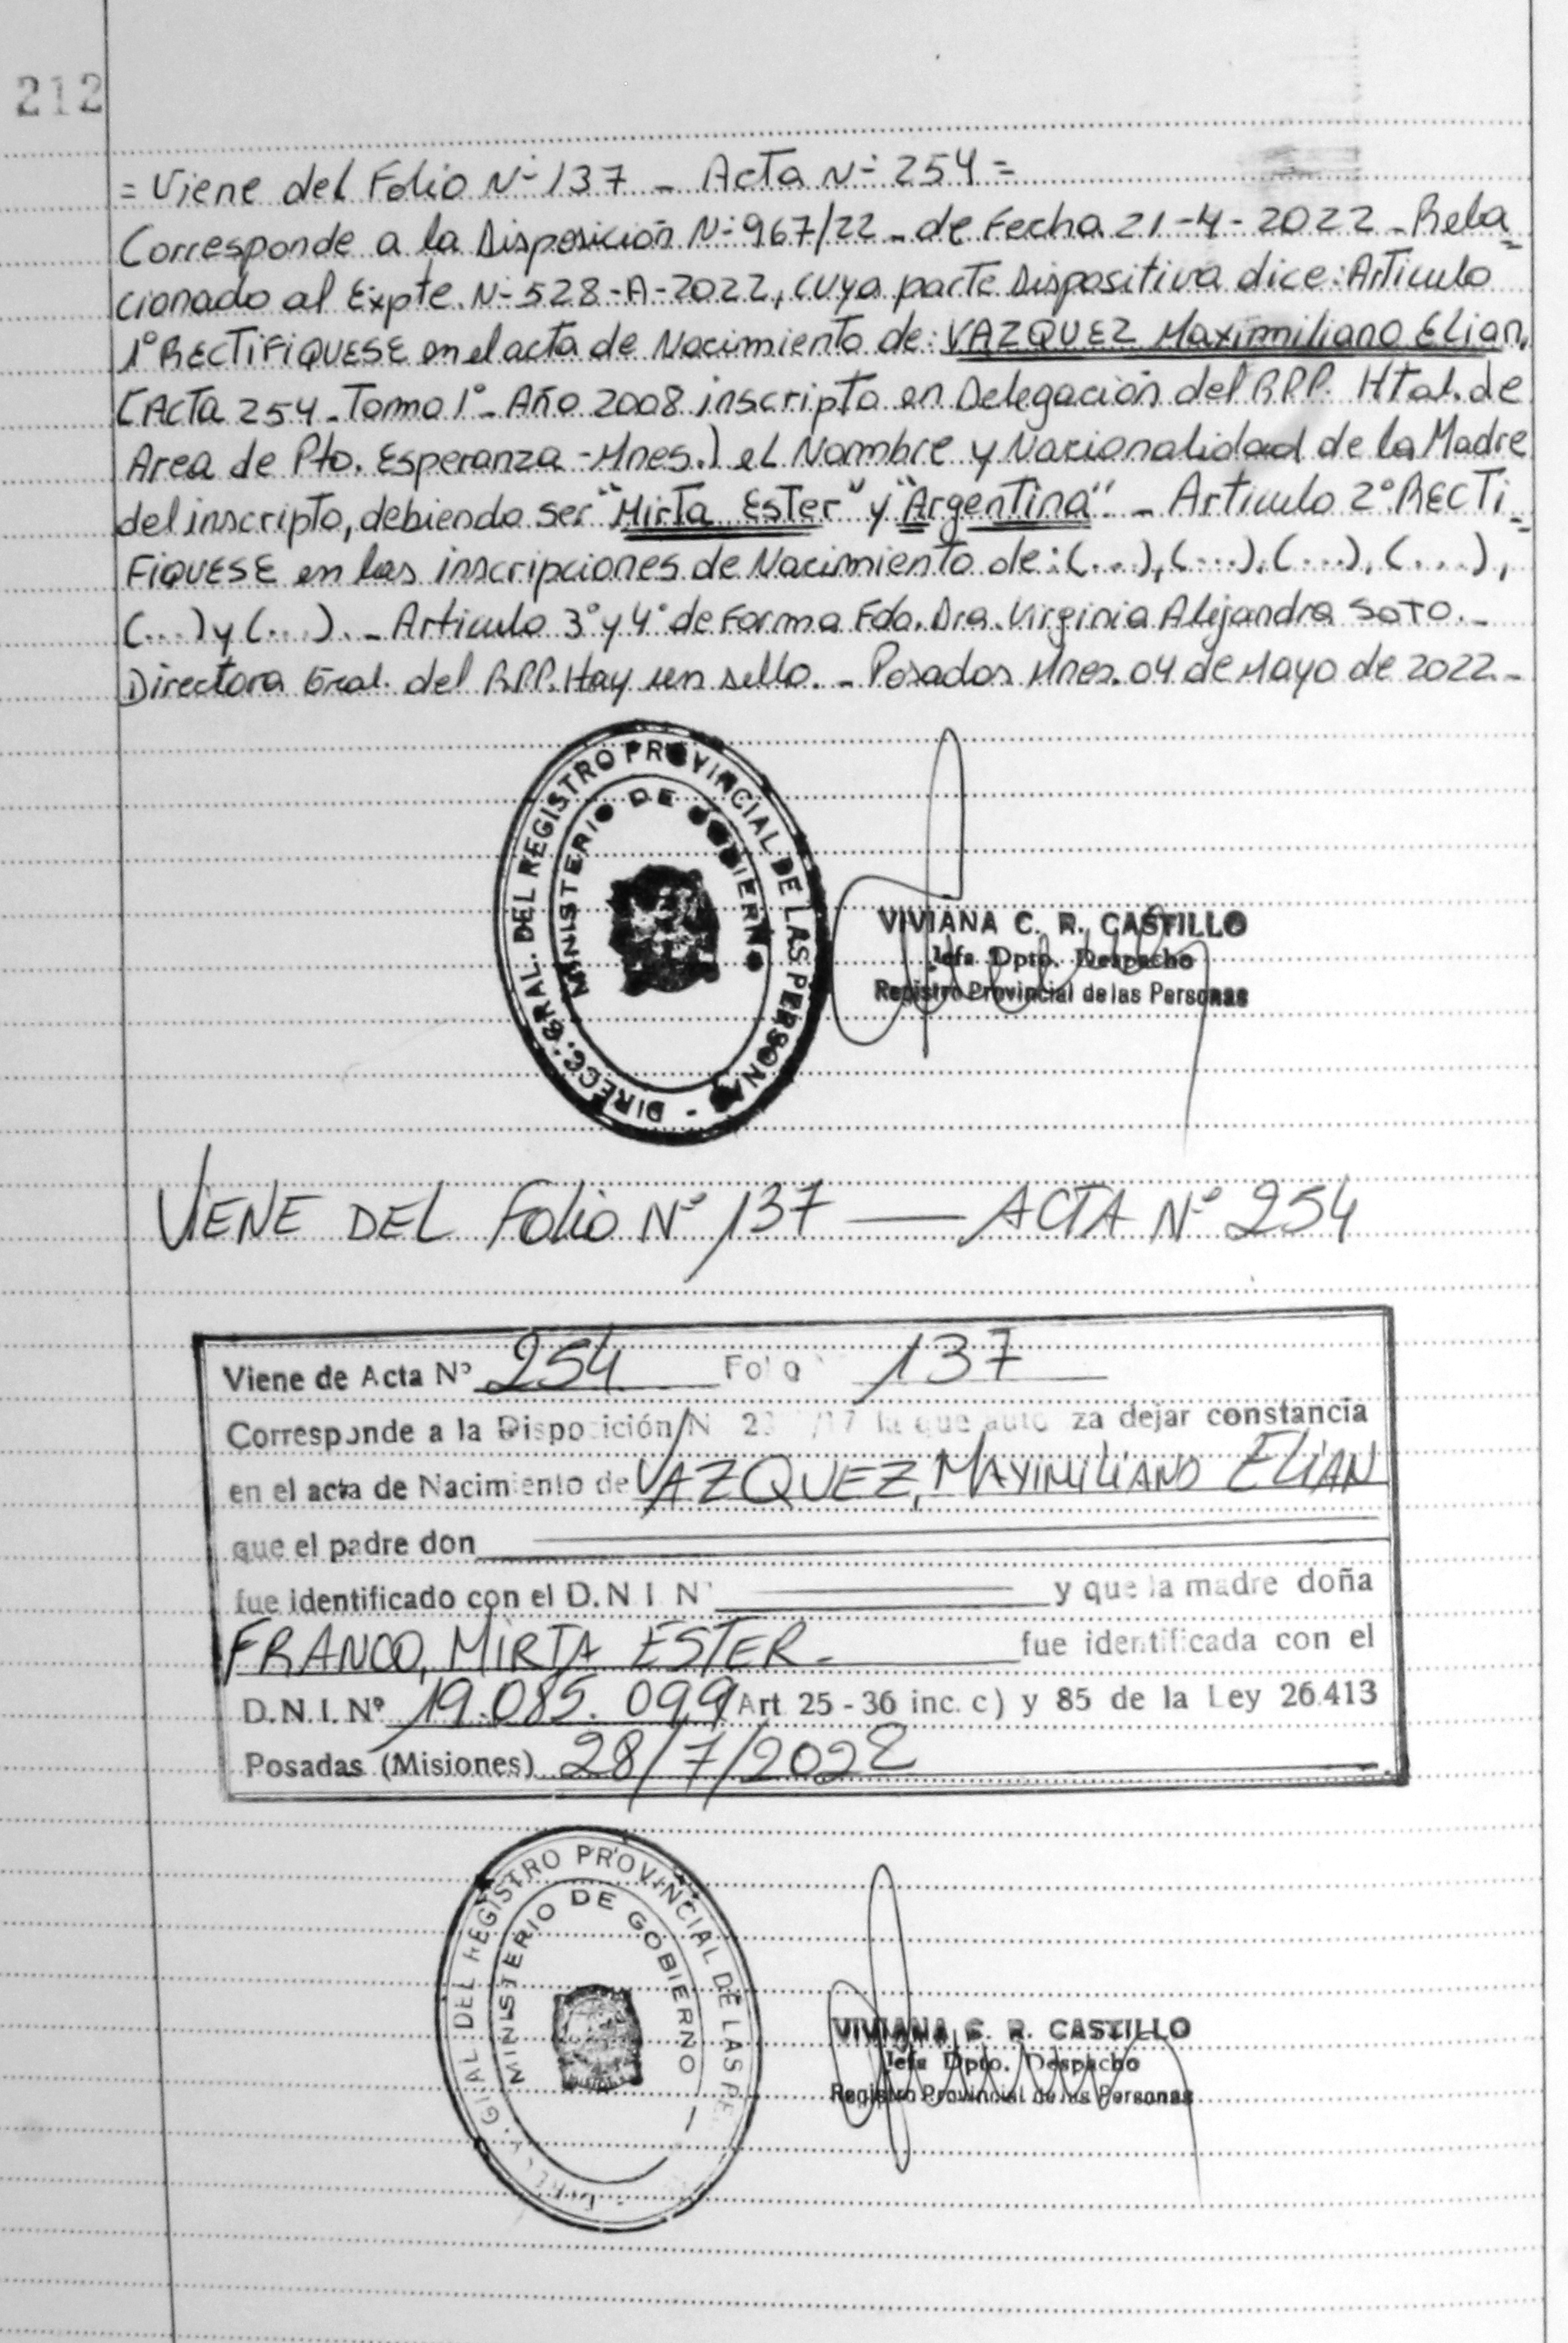 212
= Viene del Folio Nº 137 - Acta Nº 254 =
Corresponde a la Disposición Nº 967/22 - de Fecha 21-4-2022 - Rela=
cionado al Expte. Nº 528-A-2022, cuya parte Dispositiva dice: Articulo
1° RECTIFIQUESE en el acta de Nacimiento de: VAZQUEZ Maximiliano Elian,
(Acta 254 - Tomo 1° - Año 2008 inscripto en Delegación del RPP. Htal. de
Area de Pto. Esperanza - Mnes.) el Nombre y Nacionalidad de la Madre
del inscripto, debiendo ser "Mirta Ester" y "Argentina" - Articulo 2° RECTI=
FIQUESE en las inscripciones de Nacimiento de: (...), (...), (...), (...),
(...) y (...). - Articulo 3° y 4° de Forma Fdo. Dra. Virginia Alejandra SOTO. -
Directora Gral. del RPP. Hay un sello. - Posadas Mnes. 04 de Mayo de 2022. -
DIRECC. GRAL. DEL REGISTRO PROVINCIAL DE LAS PERSONAS -
MINISTERIO DE GOBIERNO
VIVIANA C. R. CASTILLO
Jefa Dpto. Despacho
Registro Provincial de las Personas
VIENE DEL Folio Nº 137 — ACTA Nº 254
Viene de Acta Nº 254 Folio 137
Corresponde a la Disposición N 2 /17 la que autoriza dejar constancia
en el acta de Nacimiento de VAZQUEZ, MAXIMILIANO ELIAN
que el padre don
fue identificado con el D.N.I. Nº y que la madre doña
FRANCO, MIRTA ESTER. fue identificada con el
D.N.I. Nº 19.085.099 (Art 25 - 36 inc. c) y 85 de la Ley 26.413
Posadas (Misiones) 28/7/2022
GRAL DEL REGISTRO PROVINCIAL DE LAS PE
MINISTERIO DE GOBIERNO
VIVIANA C. R. CASTILLO
Jefa Dpto. Despacho
Registro Provincial de las Personas